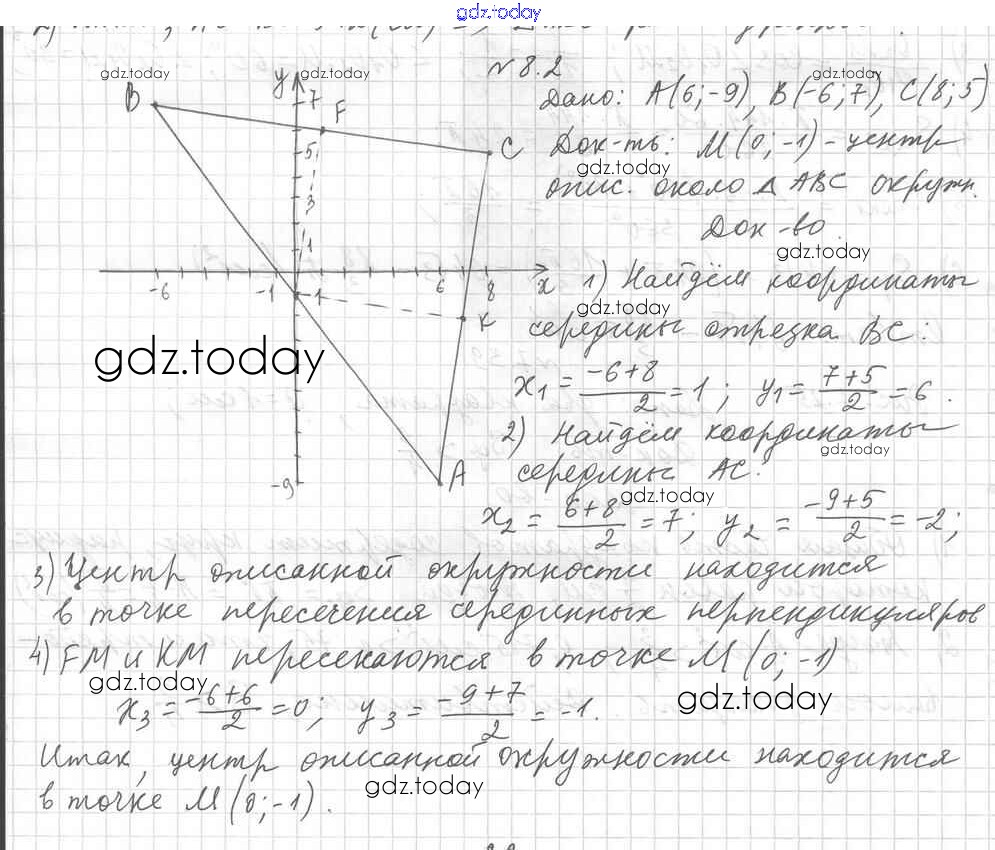 gdz.today
№ 8.2
Дано: A(6;-9), B(-6;7), C(8;5)
Док-ть: M(0;-1) - центр
опис. около Δ ABC окружн.
Док-во.
1) Найдём координаты
середины отрезка BC:
x₁ = (-6+8)/2 = 1; y₁ = (7+5)/2 = 6.
2) Найдём координаты
середины AC:
x₂ = (6+8)/2 = 7; y₂ = (-9+5)/2 = -2;
3) Центр описанной окружности находится
в точке пересечения серединных перпендикуляров
4) FM и KM пересекаются в точке M(0;-1)
x₃ = (-6+6)/2 = 0; y₃ = (-9+7)/2 = -1.
Итак, центр описанной окружности находится
в точке M(0;-1).
B
y
7
F
5
C
3
1
-6
-1
-1
6
8
x
K
-9
A
gdz.today
gdz.today
gdz.today
gdz.today
gdz.today
gdz.today
gdz.today
gdz.today
gdz.today
gdz.today
gdz.today
gdz.today